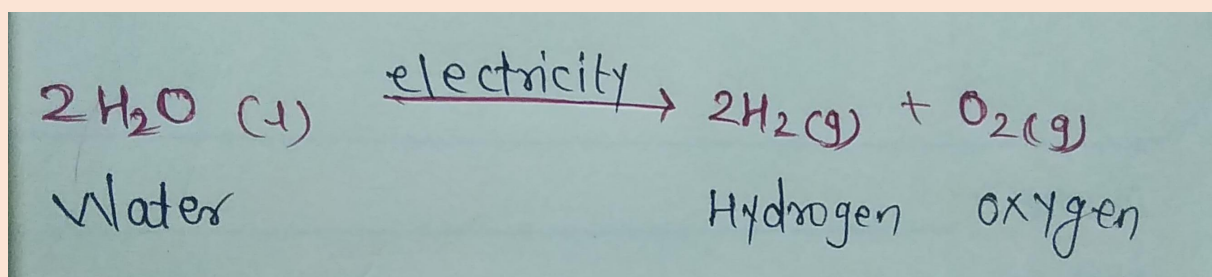 2H₂O (l) electricity → 2H₂(g) + O₂(g)
Water Hydrogen oxygen